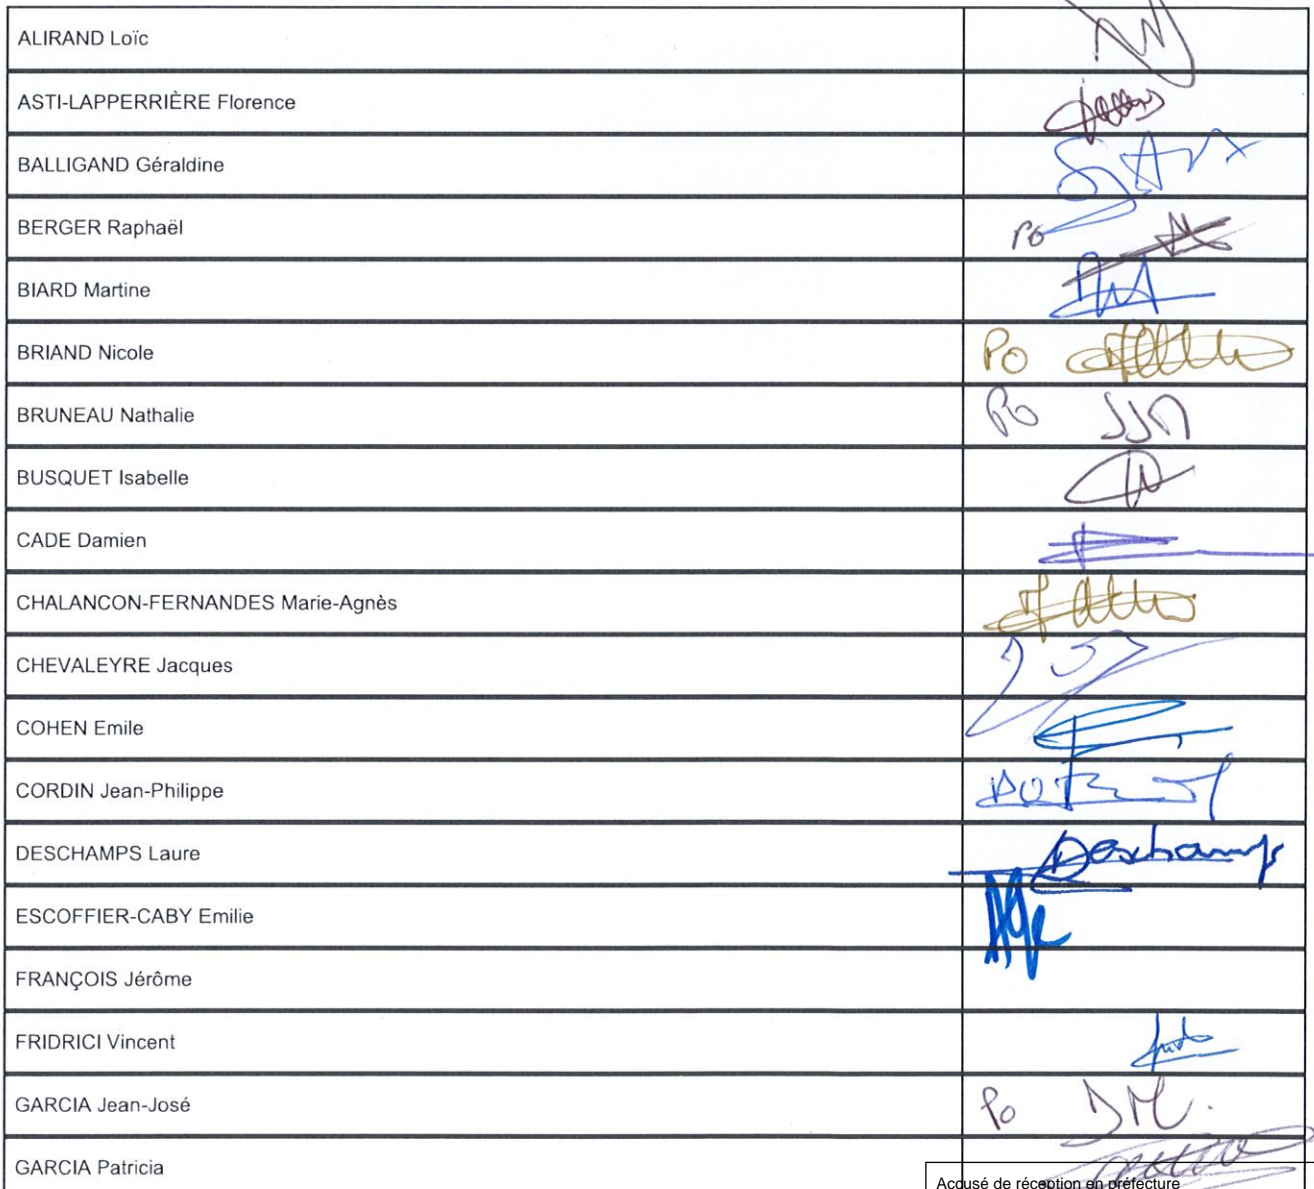 ALIRAND Loïc
ASTI-LAPPERRIÈRE Florence
BALLIGAND Géraldine
BERGER Raphaël PO
BIARD Martine
BRIAND Nicole PO
BRUNEAU Nathalie PO
BUSQUET Isabelle
CADE Damien
CHALANCON-FERNANDES Marie-Agnès
CHEVALEYRE Jacques
COHEN Emile
CORDIN Jean-Philippe
DESCHAMPS Laure Deschamps
ESCOFFIER-CABY Emilie
FRANÇOIS Jérôme
FRIDRICI Vincent
GARCIA Jean-José Po
GARCIA Patricia
Accusé de réception en préfecture